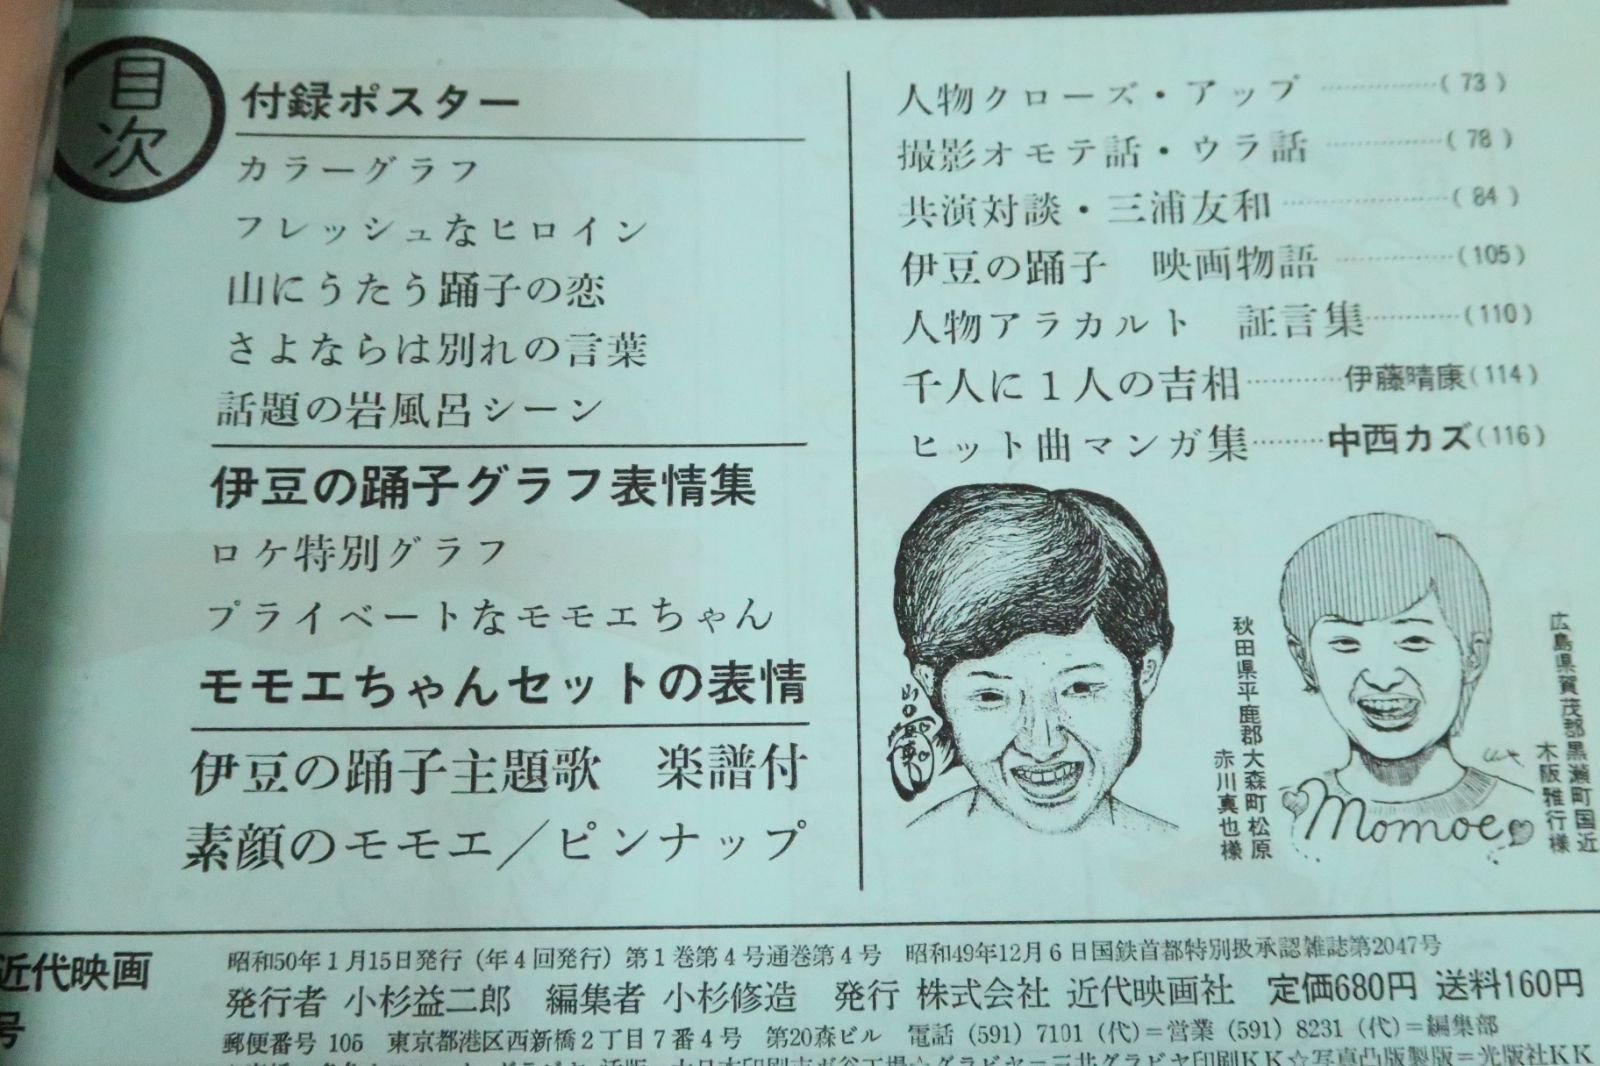 目次
付録ポスター
カラーグラフ
フレッシュなヒロイン
山にうたう踊子の恋
さよならは別れの言葉
話題の岩風呂シーン
伊豆の踊子グラフ表情集
ロケ特別グラフ
プライベートなモモエちゃん
モモエちゃんセットの表情
伊豆の踊子主題歌　楽譜付
素顔のモモエ／ピンナップ
人物クローズ・アップ…………(73)
撮影オモテ話・ウラ話…………(78)
共演対談・三浦友和…………(84)
伊豆の踊子　映画物語…………(105)
人物アラカルト　証言集…………(110)
千人に1人の吉相…………伊藤晴康(114)
ヒット曲マンガ集………中西カズ(116)
秋田県平鹿郡大森町松原
赤川真也様
Momoe
広島県賀茂郡黒瀬町国近
木阪雅行様
近代映画
号
昭和50年1月15日発行（年4回発行）第1巻第4号通巻第4号　昭和49年12月6日国鉄首都特別扱承認雑誌第2047号
発行者 小杉益二郎　編集者 小杉修造　発行 株式会社 近代映画社　定価680円 送料160円
郵便番号 105　東京都港区西新橋2丁目7番4号　第20森ビル　電話（591）7101（代）＝営業（591）8231（代）＝編集部
グラビヤ＝三共グラビヤ印刷KK☆写真凸版製版＝光版社KK